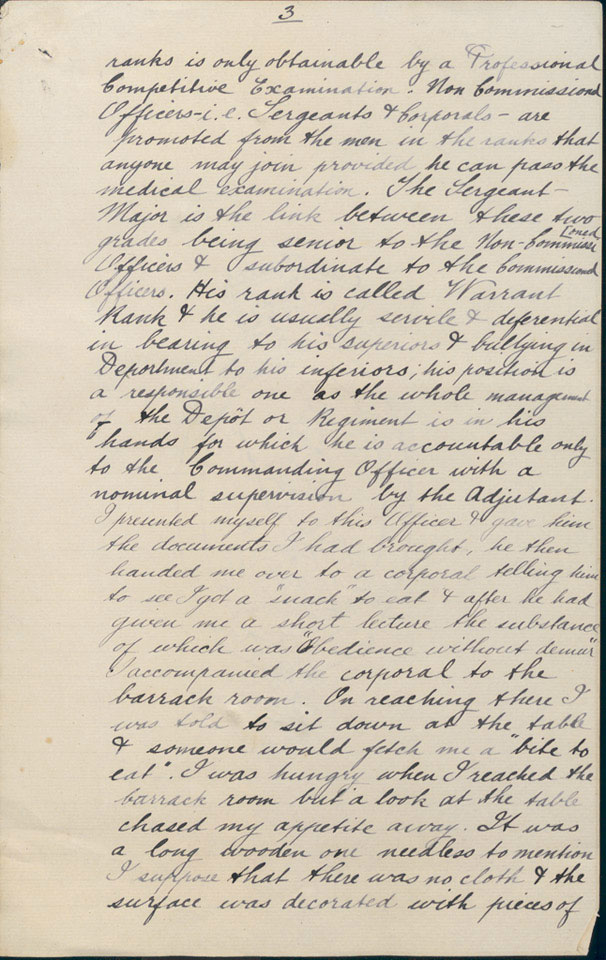 3
ranks is only obtainable by a Professional
Competitive Examination. Non Commissioned
Officers - i.e. Sergeants & Corporals - are
promoted from the men in the ranks that
anyone may join provided he can pass the
medical examination. The Sergeant-
Major is the link between these two
grades being senior to the Non-Commissioned
Officers & subordinate to the Commissioned
Officers. His rank is called Warrant
Rank & he is usually servile & deferential
in bearing to his superiors & bullying in
Deportment to his inferiors; his position is
a responsible one as the whole management
of the Depôt or Regiment is in his
hands for which he is accountable only
to the Commanding Officer with a
nominal supervision by the Adjutant.
I presented myself to this Officer & gave him
the documents I had brought, he then
handed me over to a corporal telling him
to see I got a "snack" to eat & after he had
given me a short lecture the substance
of which was "Obedience without demur"
I accompanied the corporal to the
barrack room. On reaching there I
was told to sit down at the table
& someone would fetch me a "bite to
eat". I was hungry when I reached the
barrack room but a look at the table
chased my appetite away. It was
a long wooden one needless to mention
I suppose that there was no cloth & the
surface was decorated with pieces of